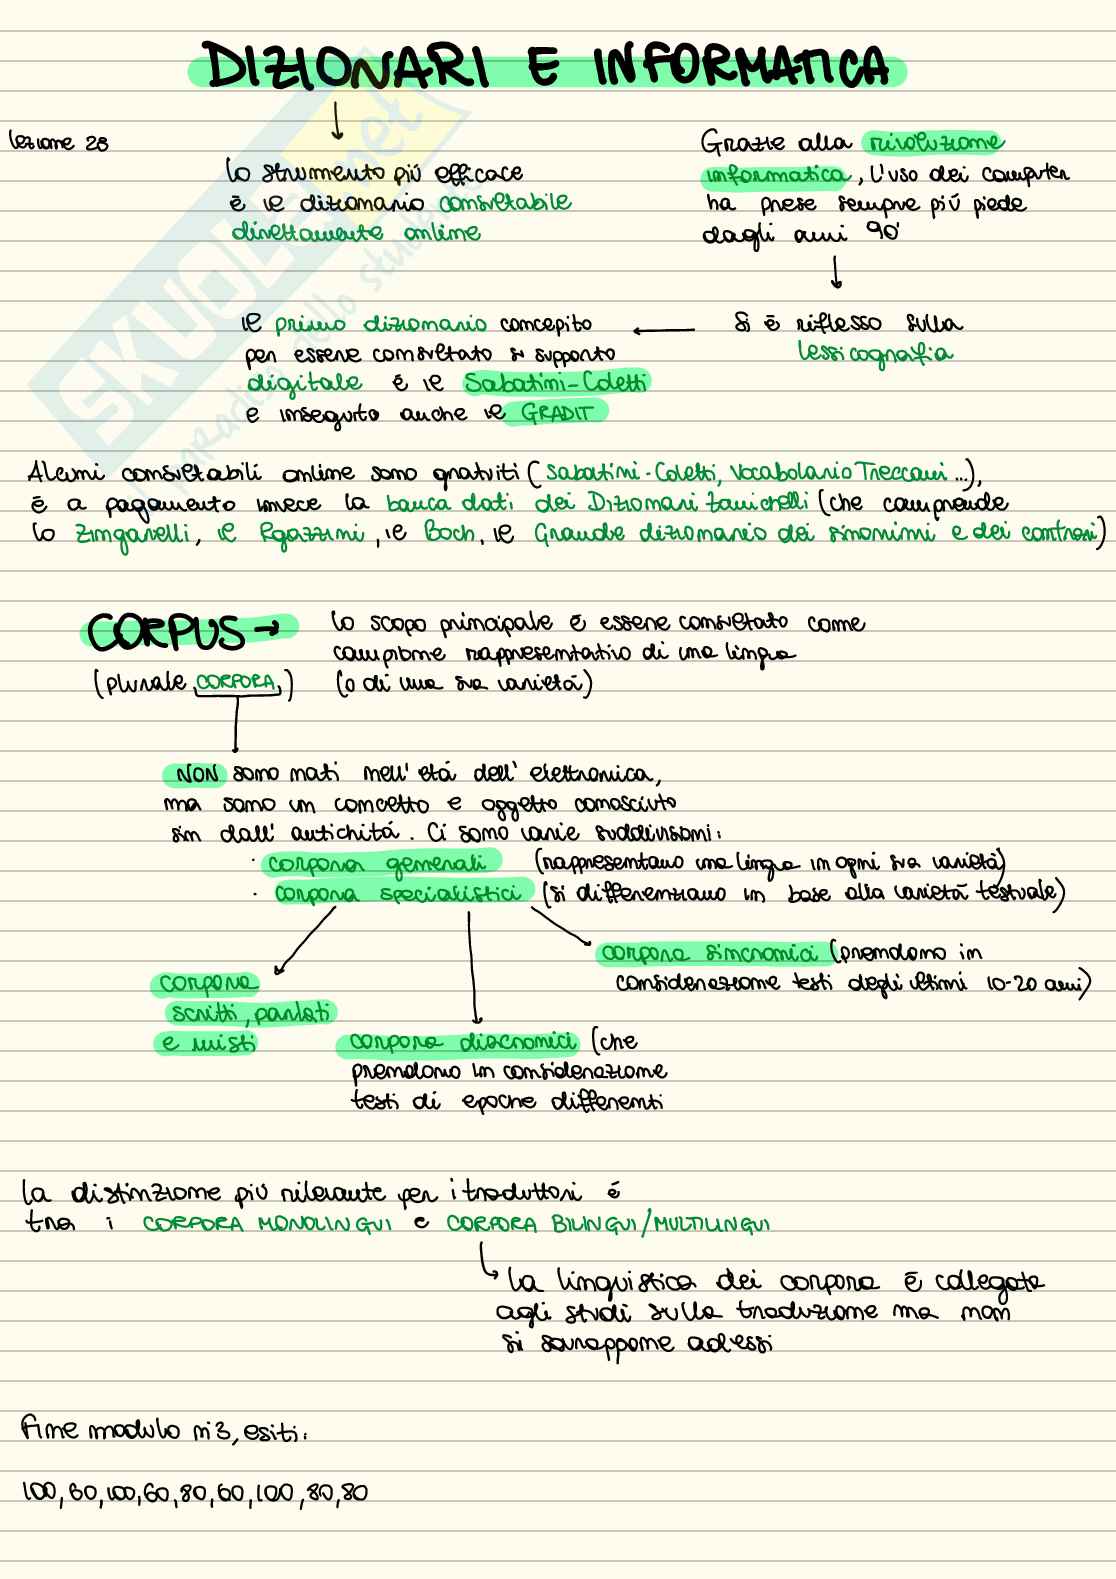 DIZIONARI E INFORMATICA
lezione 28
lo strumento più efficace
è il dizionario consultabile
direttamente online
Grazie alla rivoluzione
informatica, l'uso dei computer
ha preso sempre più piede
dagli anni 90'
Si è riflesso sulla
lessicografia
il primo dizionario concepito
per essere consultato su supporto
digitale è il Sabatini-Coletti
e inseguito anche il GRADIT
Alcuni consultabili online sono gratuiti (Sabatini-Coletti, Vocabolario Treccani ...),
è a pagamento invece la banca dati dei Dizionari Zanichelli (che comprende
lo Zingarelli, il Ragazzini, il Boch, il Grande dizionario dei sinonimi e dei contrari)
CORPUS → lo scopo principale è essere consultato come
campione rappresentativo di una lingua
(plurale CORPORA) (o di una sua varietà)
NON sono nati nell'età dell'elettronica,
ma sono un concetto e oggetto conosciuto
sin dall'antichità. Ci sono varie suddivisioni:
· corpora generali (rappresentano una lingua in ogni sua varietà)
· corpora specialistici (si differenziano in base alla varietà testuale)
corpora sincronici (prendono in
considerazione testi degli ultimi 10-20 anni)
corpora
scritti, parlati
e misti
corpora diacronici (che
prendono in considerazione
testi di epoche differenti
La distinzione più rilevante per i traduttori è
tra i CORPORA MONOLINGUI e CORPORA BILINGUI/MULTILINGUI
La linguistica dei corpora è collegata
agli studi sulla traduzione ma non
si sovrappone ad essi
Fine modulo n°3, esiti:
100, 60, 100, 60, 80, 60, 100, 80, 80
SKUOLA.net